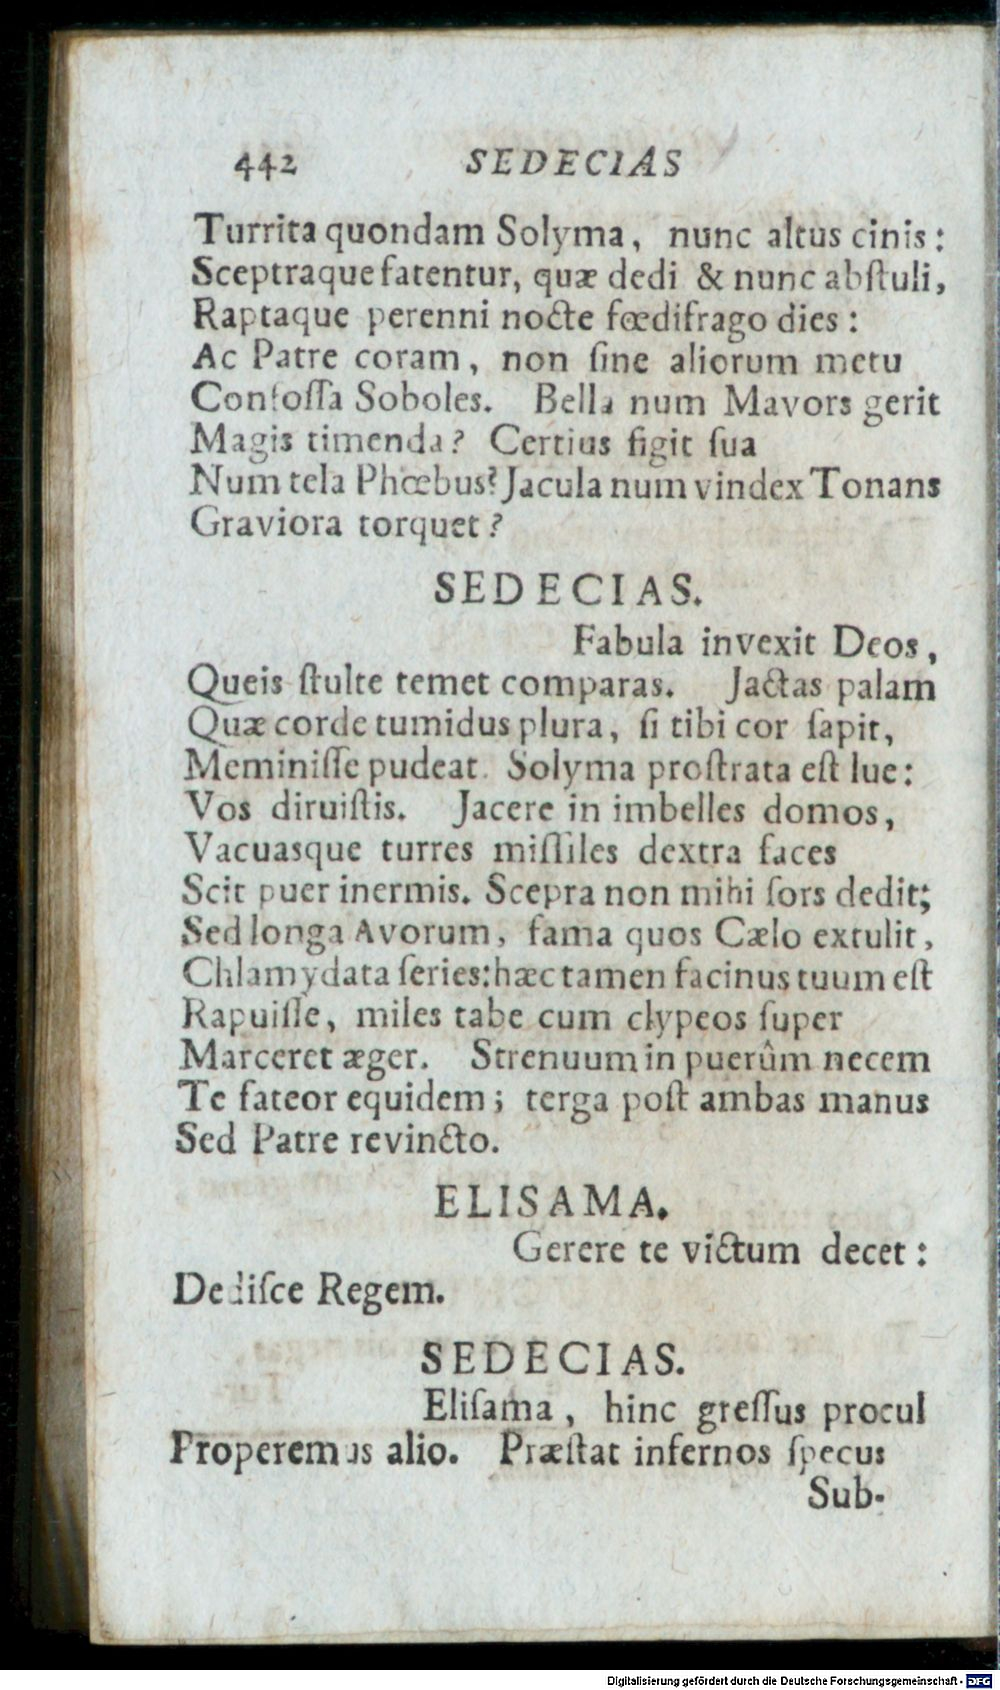 442 SEDECIAS
Turrita quondam Solyma, nunc altus cinis:
Sceptraque fatentur, quæ dedi & nunc abſtuli,
Raptaque perenni nocte fœdifrago dies:
Ac Patre coram, non ſine aliorum metu
Confoſſa Soboles. Bella num Mavors gerit
Magis timenda? Certius figit ſua
Num tela Phœbus? Jacula num vindex Tonans
Graviora torquet?
SEDECIAS.
Fabula invexit Deos,
Queis ſtulte temet comparas. Jactas palam
Quæ corde tumidus plura, ſi tibi cor ſapit,
Meminiſſe pudeat. Solyma proſtrata eſt lue:
Vos diruiſtis. Jacere in imbelles domos,
Vacuasque turres miſſiles dextra faces
Scit puer inermis. Scepra non mihi ſors dedit;
Sed longa Avorum, fama quos Cælo extulit,
Chlamydata ſeries: hæc tamen facinus tuum eſt
Rapuiſſe, miles tabe cum clypeos ſuper
Marceret æger. Strenuum in puerûm necem
Te fateor equidem; terga poſt ambas manus
Sed Patre revincto.
ELISAMA.
Gerere te victum decet:
Dediſce Regem.
SEDECIAS.
Eliſama, hinc greſſus procul
Properemus alio. Præſtat infernos ſpecus
Sub-
Digitalisierung gefördert durch die Deutsche Forschungsgemeinschaft - DFG